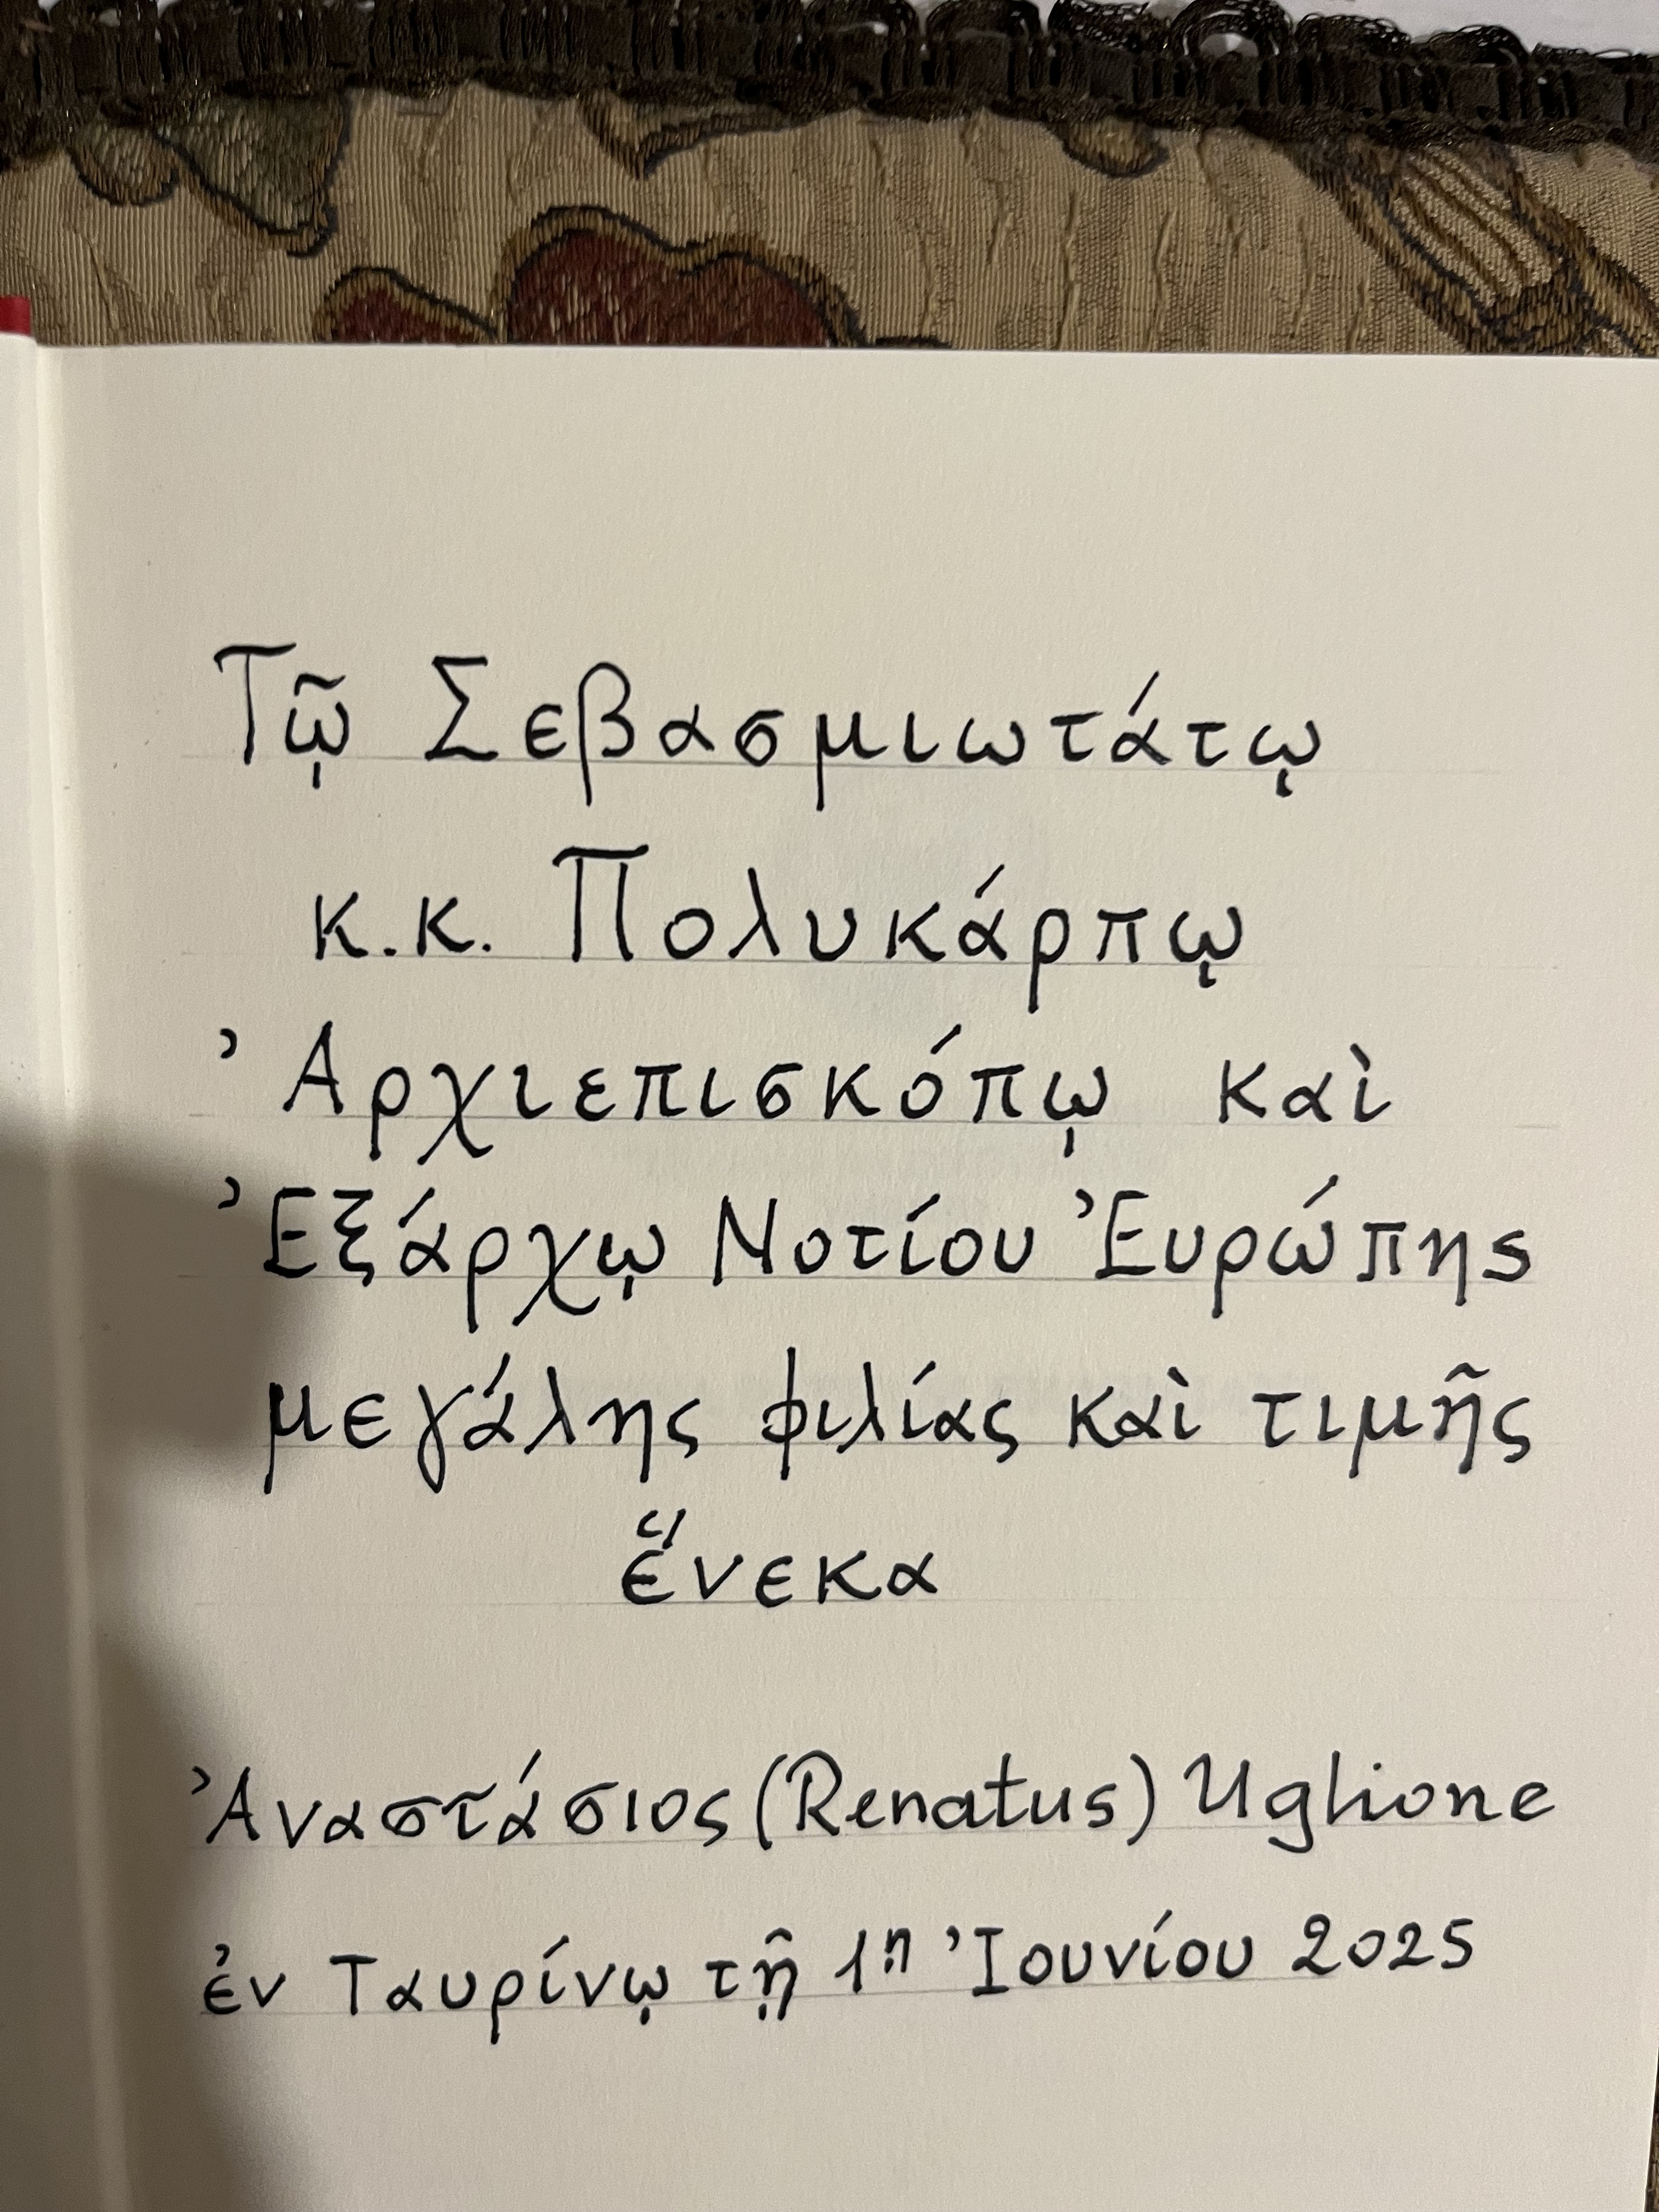 Τῷ Σεβασμιωτάτῳ
κ.κ. Πολυκάρπῳ
Ἀρχιεπισκόπῳ καὶ
Ἐξάρχῳ Νοτίου Ἐυρώπης
μεγάλης φιλίας καὶ τιμῆς
ἕνεκα
Ἀναστάσιος (Renatus) Uglione
ἐν Ταυρίνῳ τῇ 1ῃ Ἰουνίου 2025